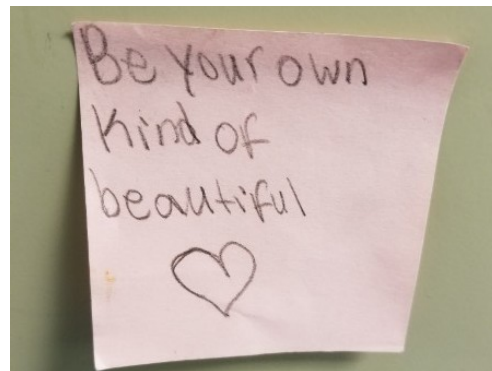 Be your own
kind of
beautiful